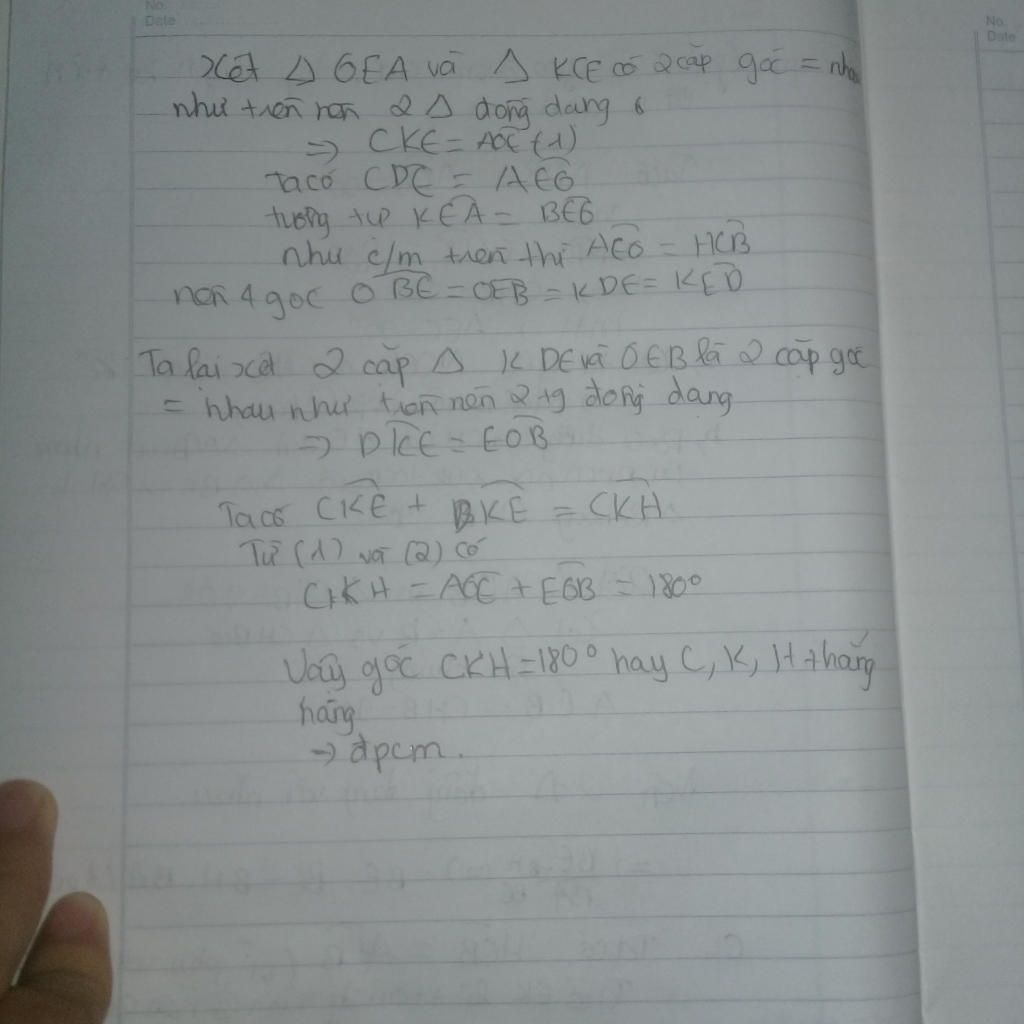 No.
Date
No.
Date
Xét Δ OEA và Δ KCE có 2 cặp góc = nhau
như trên nên 2 Δ đồng dạng
=> CKE = AOE (1)
Ta có CDE = AEO
tương tự KEA = BEO
như c/m trên thì AEO = HCB
nên 4 góc OBE = OEB = KDE = KED
Ta lại xét 2 cặp Δ KDE và OEB là 2 cặp góc
= nhau như trên nên 2 tg đồng dạng
=> DKE = EOB
Ta có CKE + DKE = CKH
Từ (1) và (2) có
CKH = AOE + EOB = 180°
Vậy góc CKH = 180° hay C, K, H thẳng
hàng
=> đpcm.